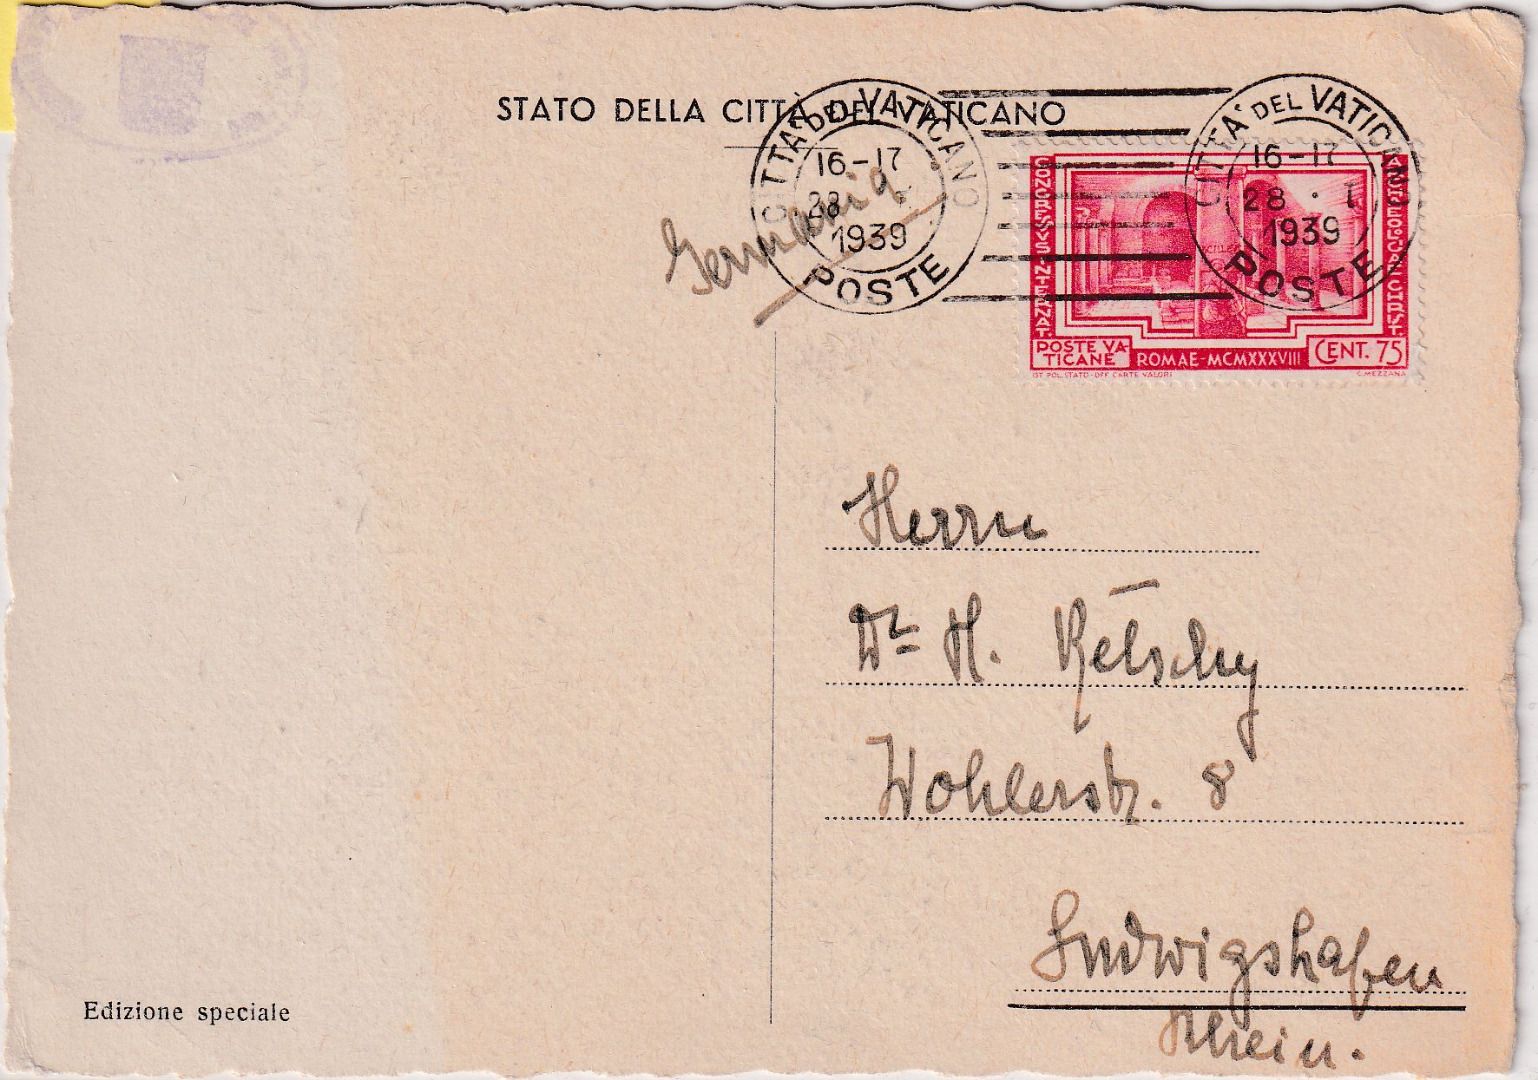 STATO DELLA CITTÀ DEL VATICANO
CITTA' DEL VATICANO
16-17
28
1939
POSTE
CITTA' DEL VATICANO
16-17
28 · I
1939
POSTE
Germania
CONGRESSVS INTERNAT.
ARCHEOLOGIAE CHRIST.
POSTE VA-
TICANE
ROMAE-MCMXXXVIII
CENT. 75
IST. POL. STATO-OFF. CARTE VALORI
C. MEZZANA
Herrn
Dr H. Rētschy
Wöhlerstr. 8
Ludwigshafen
Rhein.
Edizione speciale